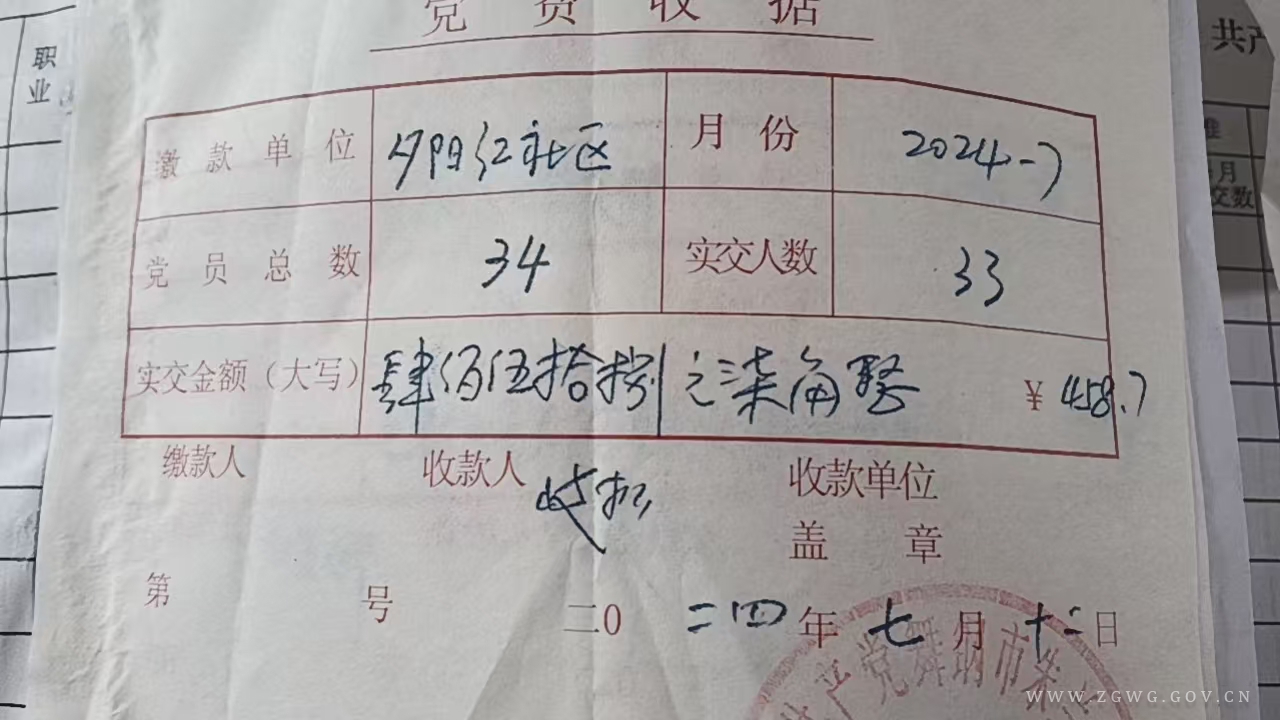 党费收据
职业
共产
缴款单位 夕阳红社区 月份 2024-7
党员总数 34 实交人数 33
实交金额（大写） 肆佰伍拾捌元柒角整 ¥ 458.7
缴款人 收款人 收款单位
盖章
第 号 二0二四年七月十二日
产党舞钢市朱
WWW.ZGWG.GOV.CN